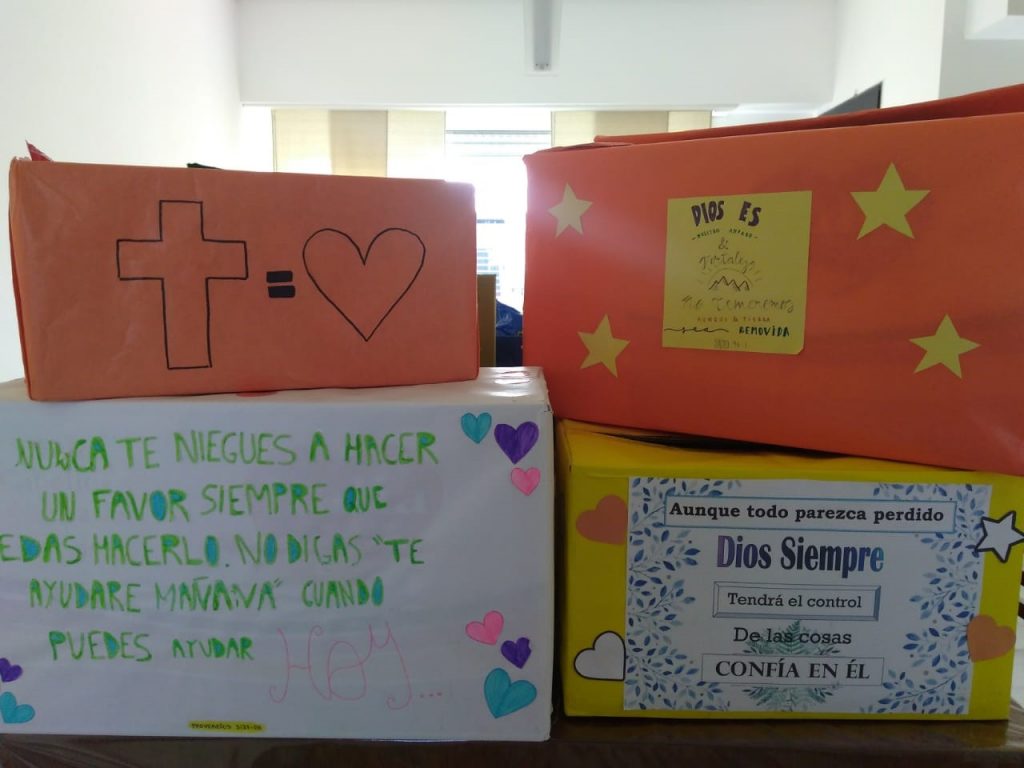 =
DIOS ES
-NUESTRO AMPARO-
&
Fortaleza
No temeremos
AUNQUE LA TIERRA
sea REMOVIDA
NUNCA TE NIEGUES A HACER
UN FAVOR SIEMPRE QUE
EDAS HACERLO. NO DIGAS "TE
AYUDARE MAÑANA" CUANDO
PUEDES AYUDAR HOY...
PROVERBIOS 3:27-28
Aunque todo parezca perdido
Dios Siempre
Tendrá el control
De las cosas
CONFÍA EN ÉL